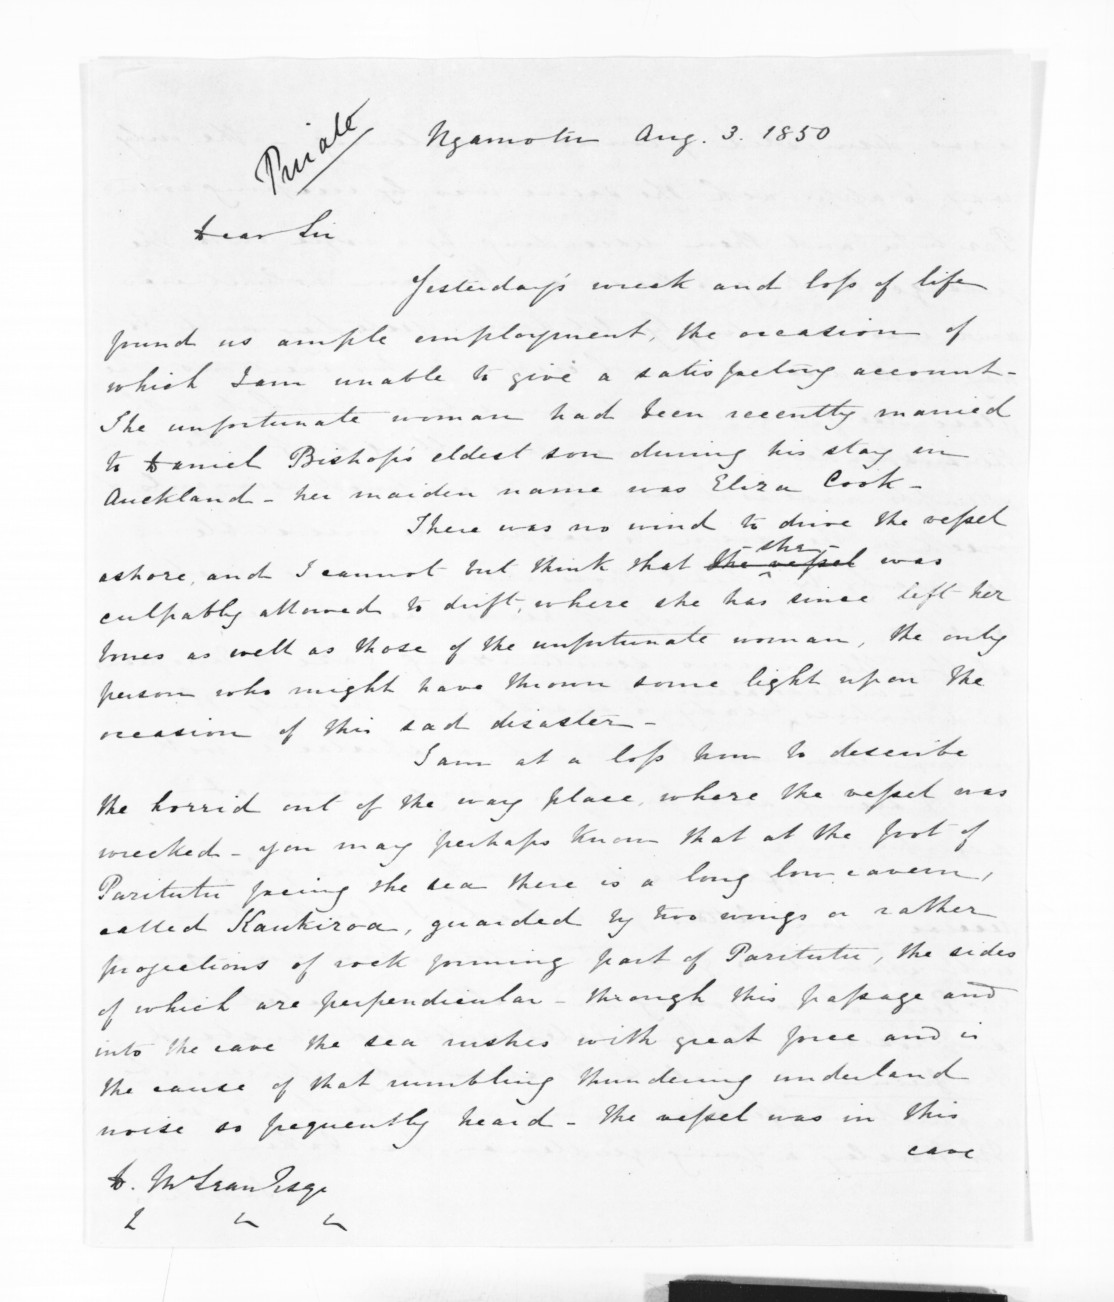 Private
Ngamotu Aug. 3. 1850
Dear Sir
Yesterday's wreck and loss of life
found us ample employment, the occasion of
which I am unable to give a satisfactory account -
The unfortunate woman had been recently married
to Daniel Bishop's eldest son during his stay in
Auckland - her maiden name was Eliza Cook -
There was no wind to drive the vessel
she
ashore, and I cannot but think that the vessel was
culpably allowed to drift, where she has since left her
bones as well as those of the unfortunate woman, the only
person who might have thrown some light upon the
occasion of this sad disaster -
I am at a loss how to describe
the horrid out of the way place, where the vessel was
wrecked - you may perhaps know that at the foot of
Paritutu facing the sea there is a long low cavern,
called Kaukiroa, guarded by two wings or rather
projections of rock forming part of Paritutu, the sides
of which are perpendicular - through this passage and
into the cave the sea rushes with great force and is
the cause of that rumbling thundering underland
noise so frequently heard - the vessel was in this
cave
D. McLean Esqe